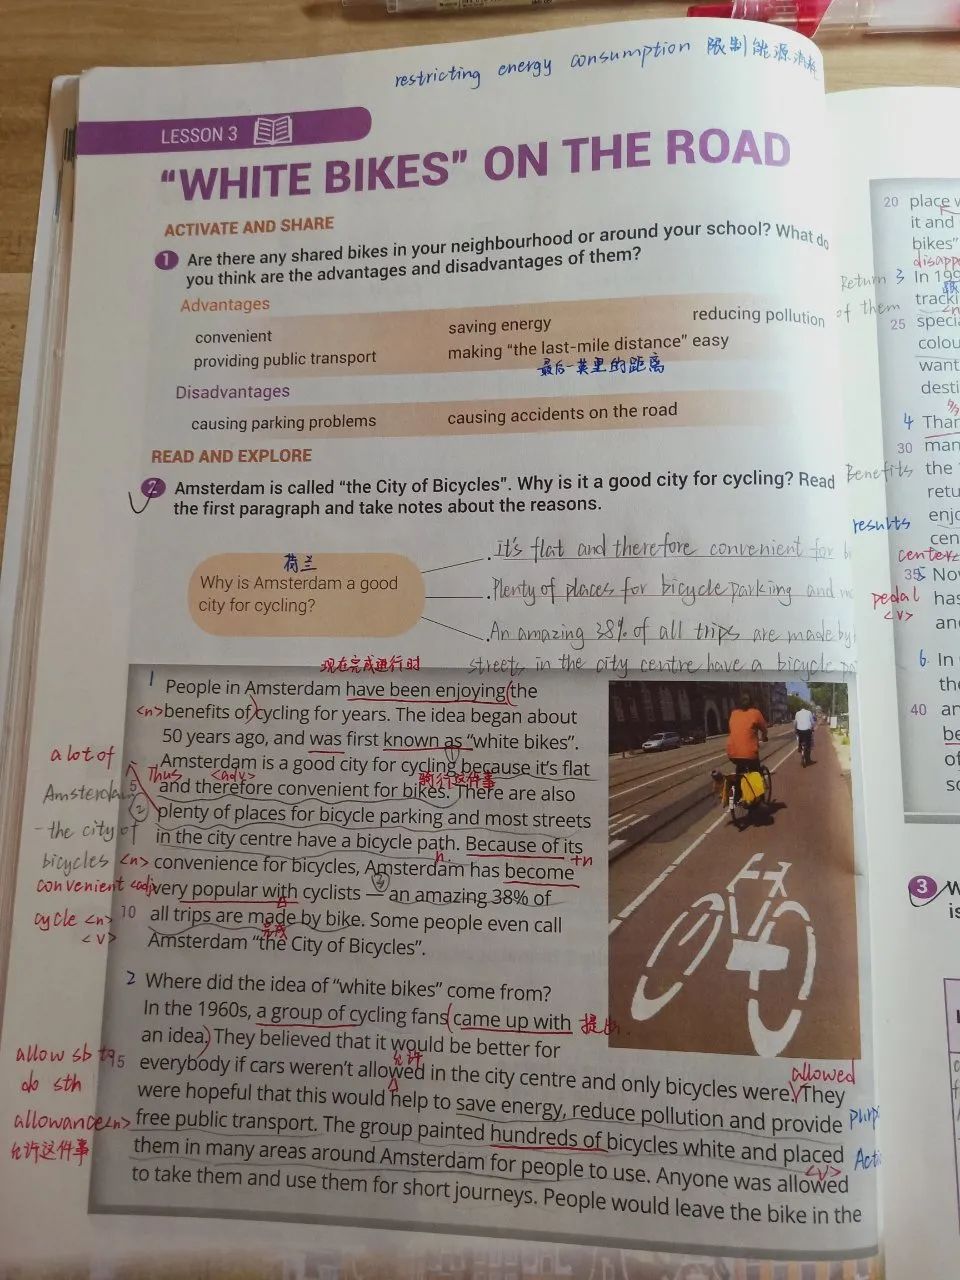 restricting energy consumption 限制能源消耗
LESSON 3
"WHITE BIKES" ON THE ROAD
ACTIVATE AND SHARE
1 Are there any shared bikes in your neighbourhood or around your school? What do
you think are the advantages and disadvantages of them?
Advantages
convenient
saving energy
reducing pollution
providing public transport
making "the last-mile distance" easy
最后一英里的距离
Disadvantages
causing parking problems
causing accidents on the road
READ AND EXPLORE
2 Amsterdam is called "the City of Bicycles". Why is it a good city for cycling? Read
the first paragraph and take notes about the reasons.
荷兰
Why is Amsterdam a good
city for cycling?
it's flat and therefore convenient for b
Plenty of places for bicycle parking and m
An amazing 38% of all trips are made by
streets in the city centre have a bicycle pa
现在完成进行时
1 People in Amsterdam have been enjoying the
<n> benefits of cycling for years. The idea began about
50 years ago, and was first known as "white bikes".
Amsterdam is a good city for cycling because it's flat
Thus <adv> 骑行这件事
5 and therefore convenient for bikes. There are also
plenty of places for bicycle parking and most streets
in the city centre have a bicycle path. Because of its
n. +n
<n> convenience for bicycles, Amsterdam has become
very popular with cyclists — an amazing 38% of
10 all trips are made by bike. Some people even call
完成
Amsterdam "the City of Bicycles".
a lot of
Amsterdam
- the city of
bicycles
convenient <adj>
cycle <n>
<v>
2 Where did the idea of "white bikes" come from?
In the 1960s, a group of cycling fans came up with 提出
an idea. They believed that it would be better for
允许
15 everybody if cars weren't allowed in the city centre and only bicycles were. They
allowed
were hopeful that this would help to save energy, reduce pollution and provide
free public transport. The group painted hundreds of bicycles white and placed
them in many areas around Amsterdam for people to use. Anyone was allowed
<v>
to take them and use them for short journeys. People would leave the bike in the
allow sb to
do sth
allowance <n>
允许这件事
20 place w
it and
bikes"
disapp
Return 3 In 199
of them
tracki
25 speci
colou
want
desti
4 Than
30 man
Benefits the
retu
results enjo
cen
center
35 5 Now
pedal has
<v> and
6. In
the
40 an
be
of
so
3 W
is